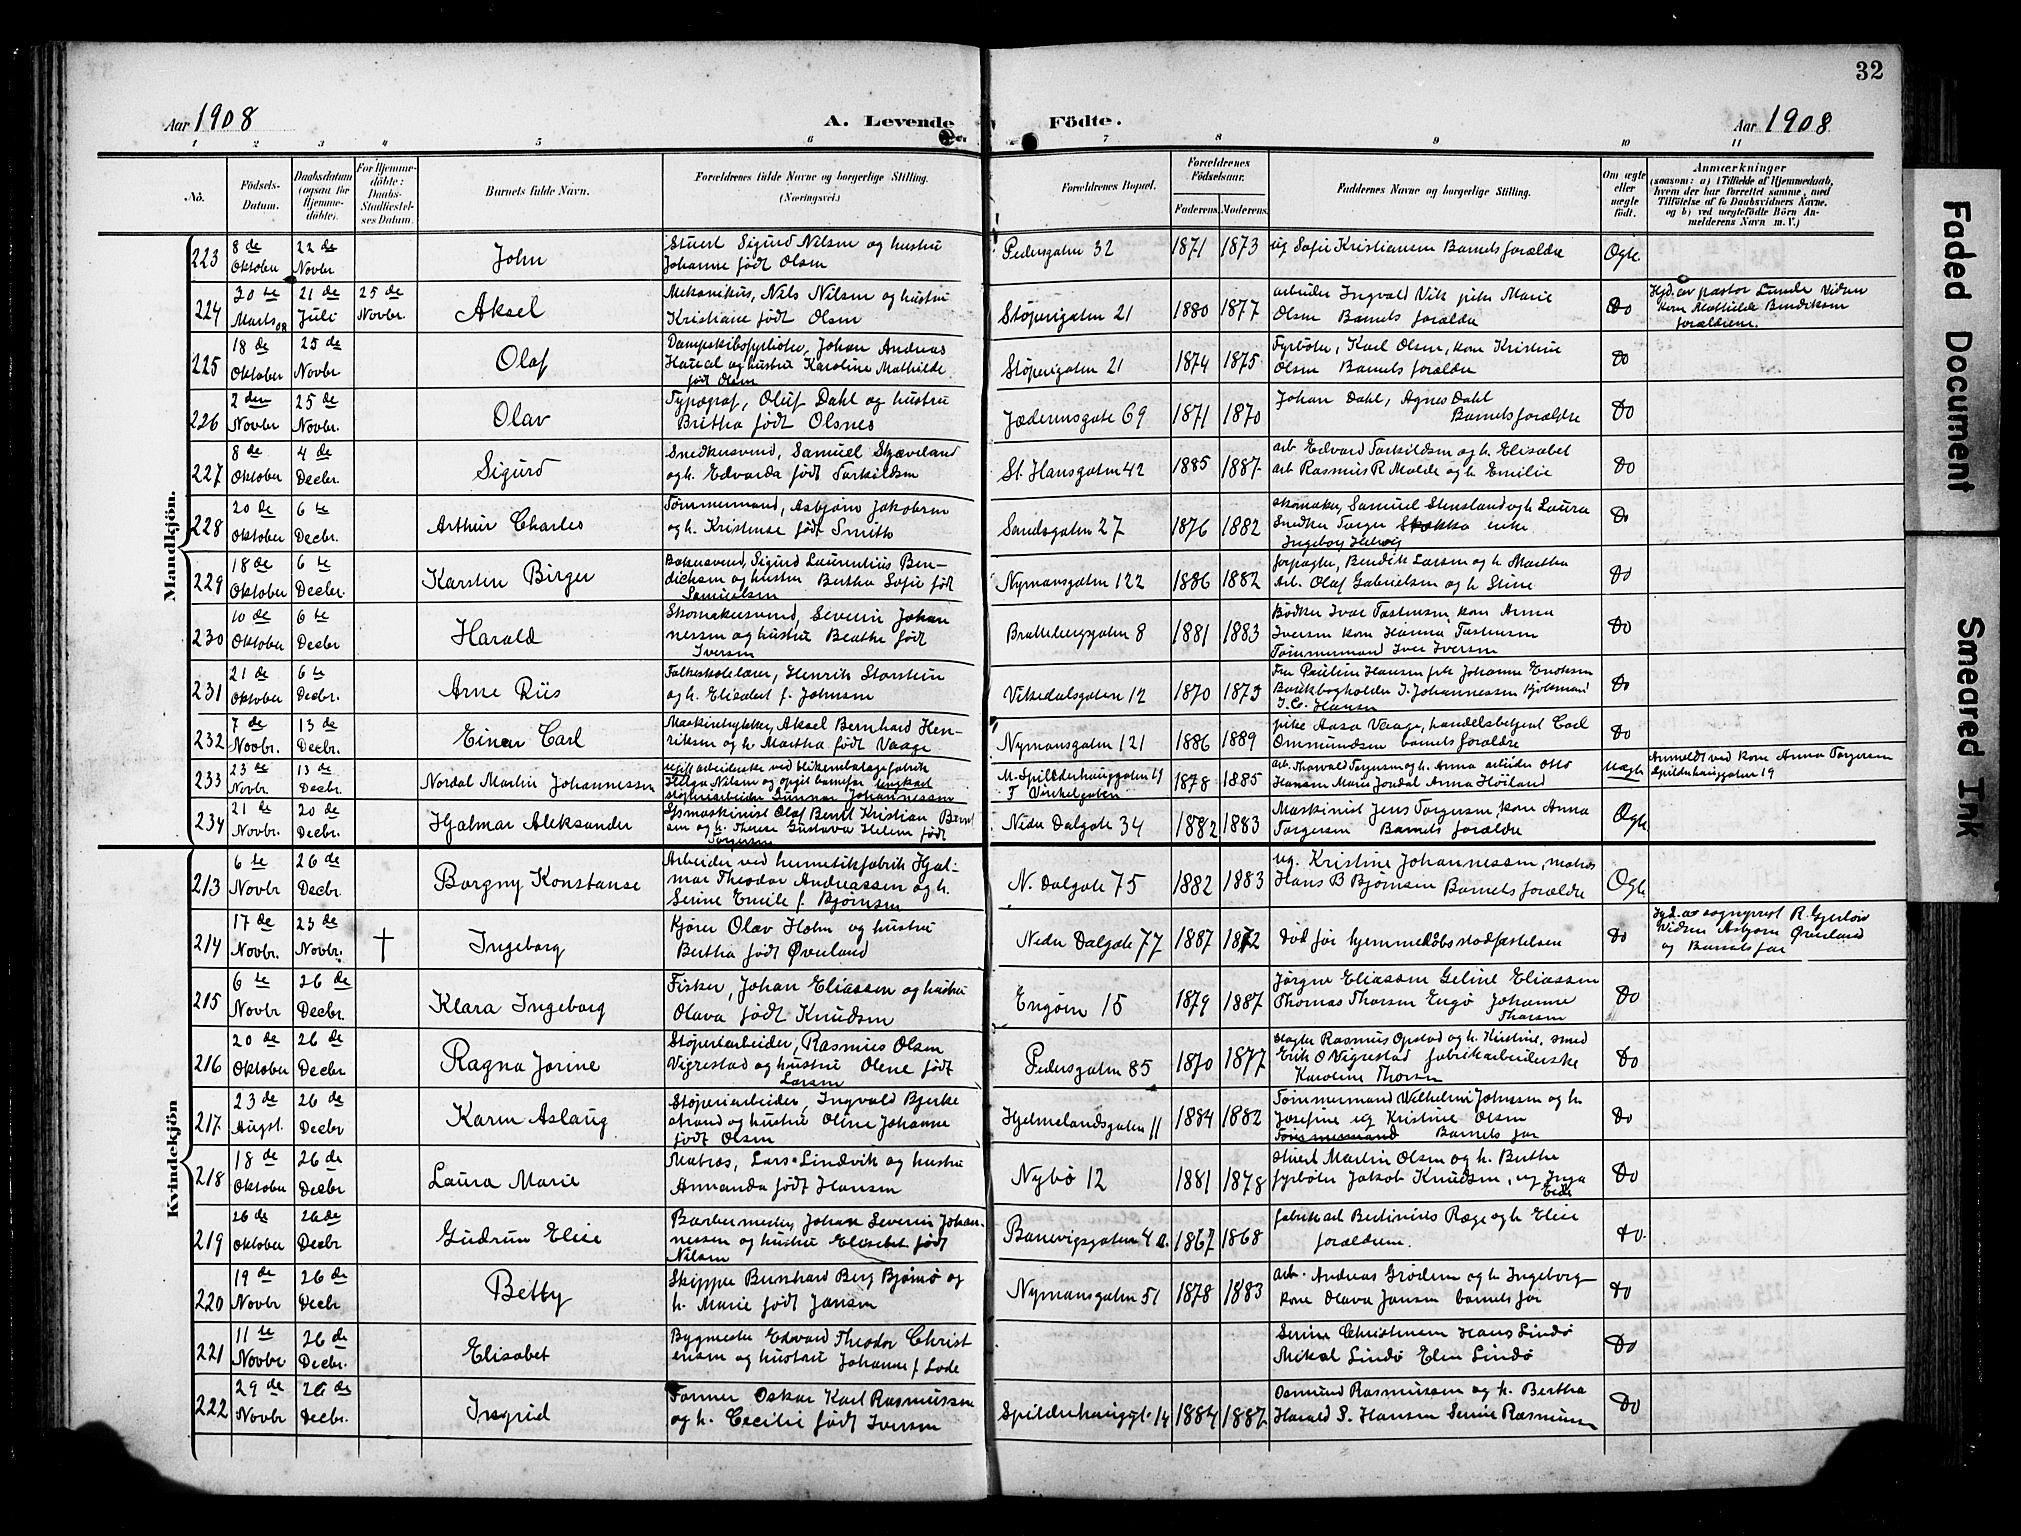 32
Aar 1908
A. Levende Födte.
Aar 1908
1 2 3 4 5 6 7 8 9 10 11
No.
Födsels-
Datum.
Daabsdatum
(ogsaa for
Hjemme-
döbte).
For Hjemme-
döbte:
Daabs-
Stadfæstel-
ses Datum.
Barnets fulde Navn.
Forældrenes fulde Navne og borgerlige Stilling.
(Næringsvei.)
Forældrenes Bopæl.
Forældrenes
Födselsaar.
Faderens. Moderens.
Faddernes Navne og borgerlige Stilling.
Om ægte
eller
uægte
födt.
Anmærkninger
(saasom: a) i Tilfælde af Hjemmedaab,
hvem der har forrettet samme, med
Tilföielse af to Daabsvidners Navne.
og b) ved uægtefödte Börn An-
melderens Navn m. V.)
Mandkjön.
223 8 de Oktober 22 de Novbr John
Stuert Sigurd Nilsen og hustru
Johanne født Olsen
Pedersgaten 32 1871 1873
ug Sofie Kristiansen Barnets forældre
Ægte
224 30 te Marts 08 21 de Juli 25 de Novbr. Aksel
Mekanikus, Nils Nilsen og hustru
Kristiane født Olsen
Støperigaten 21 1880 1877
arbeider Ingvald Vik pike Marie
Olsen Barnets forældre
Do
Hjd. av pastor Lunde Vidner
kone Mathilde Bendiksen
forældrene.
225 18 de Oktober 25 de Novbr Olaf
Dampskibsfyrbøter, Johan Andreas
og hustru Karoline Mathilde
født Olsen
Støperigaten 21 1874 1875
Fyrbøter, Karl Olsen, kone Kristine
Olsen Barnets forældre
Do
226 2 den Novbr 25 de Novbr. Olav
Typograf, Oluf Dahl og hustru
Britha født Olsnes
Jæderensgate 69 1871 1870
Johan Dahl, Agnes Dahl
Barnets forældre
Do
227 8 de Oktober 4 de Decbr. Sigurd
Snedkersvend, Samuel Skjæveland
og h. Edvarda født Torkildsen
St. Hansgaten 42 1885 1887
arb Edvard Torkildsen og h. Elisabet
arb Rasmus R. Malde og h Emilie
Do
228 20 de Oktober 6 te Decbr. Arthur Charles
Tømmermand, Asbjørn Jakobsen
og h. Kristense født Smith
Sandsgaten 27 1876 1882
skomaker, Samuel Stensland og h Laura
Snedker Torger Stokka enke
Ingeborg
Do
229 18 de Oktober 6 te Decbr. Karsten Birger
Bakersvend, Sigurd Laurentius Ben-
dicksen og hustru Bertha Sofie født
Samuelsen
Nymansgaten 122 1886 1882
forpagter, Bendik Larsen og h Martha
Arb. Olaf Gabrielsen og h Stine
Do
230 10 de Oktober 6 te Decbr. Harald
Skomakersvend, Severin Johan
nessen og hustru Beathe født
Iversen
Brattebergsgaten 8 1881 1883
Bødker Ivar Tastensen, kone Anna
Iversen kone Hanna Tastensen
Tømmermand Iver Iversen
Do
231 21 de Oktober 6 te Decbr. Arne Riis
Folkeskolelærer, Henrik Storstein
og h. Elisabet f. Johnsen
Vikedalsgaten 12 1870 1873
Fru Pauline Hansen frk Johanne Enoksen
Bankbogholder J. Johannessen kjøbmand
J. C. Hansen
Do
232 7 de Novbr. 13 de Decbr. Einar Carl
Maskintrykker, Aksel Bernhard Hen-
riksen og h. Martha født Vaage
Nymansgaten 121 1886 1889
pike Aasa Vaage, handelsbetjent Carl
Ommundsen barnets forældre
Do
233 23 de Novbr 13 de Decbr. Nordal Martin Johannessen
ugift arbeiderske ved blikemballagefabrik
Helga Nilsen og opgit barnefar ungkarl
støperiarbeider Gunnar Johannessen
M. Spilderhauggaten 19
F. Vinkelgaten
1878 1885
arb. Thorvald Torgersen og h. Anna arbeider Otto
Hansen Marie Jondal Anna Høiland
Uægte
Anmeldt ved kone Anna Torgersen
Spilderhauggaten 19
234 21 de Novbr. 20 de Decbr. Hjalmar Aleksander
Olaf Bernt Kristian Bernt
sen og h. Therese Gustava Helene født
Torgersen
Nedre Dalgate 34 1882 1883
Maskinist Jens Torgersen, kone Anna
Torgersen Barnets forældre
Ægte
Kvindekjön
213 6 te Novbr 26 de Decbr Borgny Konstanse
Arbeider ved hermetikfabrik Hjal-
mar Theodor Andreassen og h.
Serine Emilie f. Bjørnsen
N. Dalgate 75 1882 1883
ug. Kristine Johannessen, matros
Hans B Bjørnsen Barnets forældre
Ægte
214 17 de Novbr. 23 de Novbr. † Ingeborg
Kjører Olav Holm og hustru
Bertha født Øverland
Nedre Dalgate 77 1887 1882
Død før hjemmedåbsstadfæstelsen
Do
Hjd. av sogneprest R. Gjerløv
Vidner Asbjørn Øverland
og Barnets far
215 6 te Novbr 26 de Decbr. Klara Ingeborg
Fisker, Johan Eliassen og hustru
Olava født Knudsen
Engøen 15 1879 1887
Jørgen Eliassen Geline Eliassen
Thomas Thorsen Engø Johanne
Thorsen
Do
216 20 de Oktober 26 de Decbr Ragna Jorine
Støperiarbeider, Rasmus Olsen
Vigrestad og hustru Olene født
Larsen
Pedersgaten 85 1870 1877
slagter Rasmus Opstad og h. Kirstine, smed
Erik O Vigrestad fabrikarbeiderske
Karoline Thorsen
Do
217 23 de Augst. 26 de Decbr Karen Aslaug
Støperiarbeider, Ingvald Bjerke
strand og hustru Oline Johanne
født Olsen
Hjelmelandsgaten 11 1884 1882
Tømmermand Vilhelm Johnsen og h.
Josefine ug Kristine Olsen
Tømmermand Barnets far
Do
218 18 de Oktober 26 de Decbr Laura Marie
Matros, Lars Lindvik og hustru
Amanda født Hansen
Nybø 12 1881 1878
stuert Martin Olsen og h. Berthe
fyrbøter Jakob Knudsen, ug Inga
Eide
Do
219 26 de Oktober 26 de Decbr. Gudrun Elise
Barbermester, Johan Severin Johan-
nessen og hustru Elisabet født
Nilsen
Banevigsgaten 4 a. 1867 1868
fabrikarb Bertinius Ræge og h Elise
forældrene.
Do.
220 19 de Novbr 26 de Decbr Betty
Skipper Bernhard Berg Bjørnø og
h. Marie født Jansen
Nymansgaten 51 1878 1883
arb. Andreas Grødem og h Ingeborg
kone Olava Jansen barnets far
Do
221 11 te Novbr 26 de Decbr. Elisabet
Bygmester Edvard Theodor Christ
ensen og hustru Johanne f. Lode
Serine Christensen Hans Lindø
Mikal Lindø Elen Lindø
Do
222 29 de Novbr 26 de Decbr. Ingrid
Former Oskar Karl Rasmussen
og h. Cecilie født Iversen
Spilderhauggt. 14 1884 1887
Osmund Rasmussen og h. Bertha
Harald S. Hansen Serine Rasmussen
Do
Faded Document
Smeared Ink